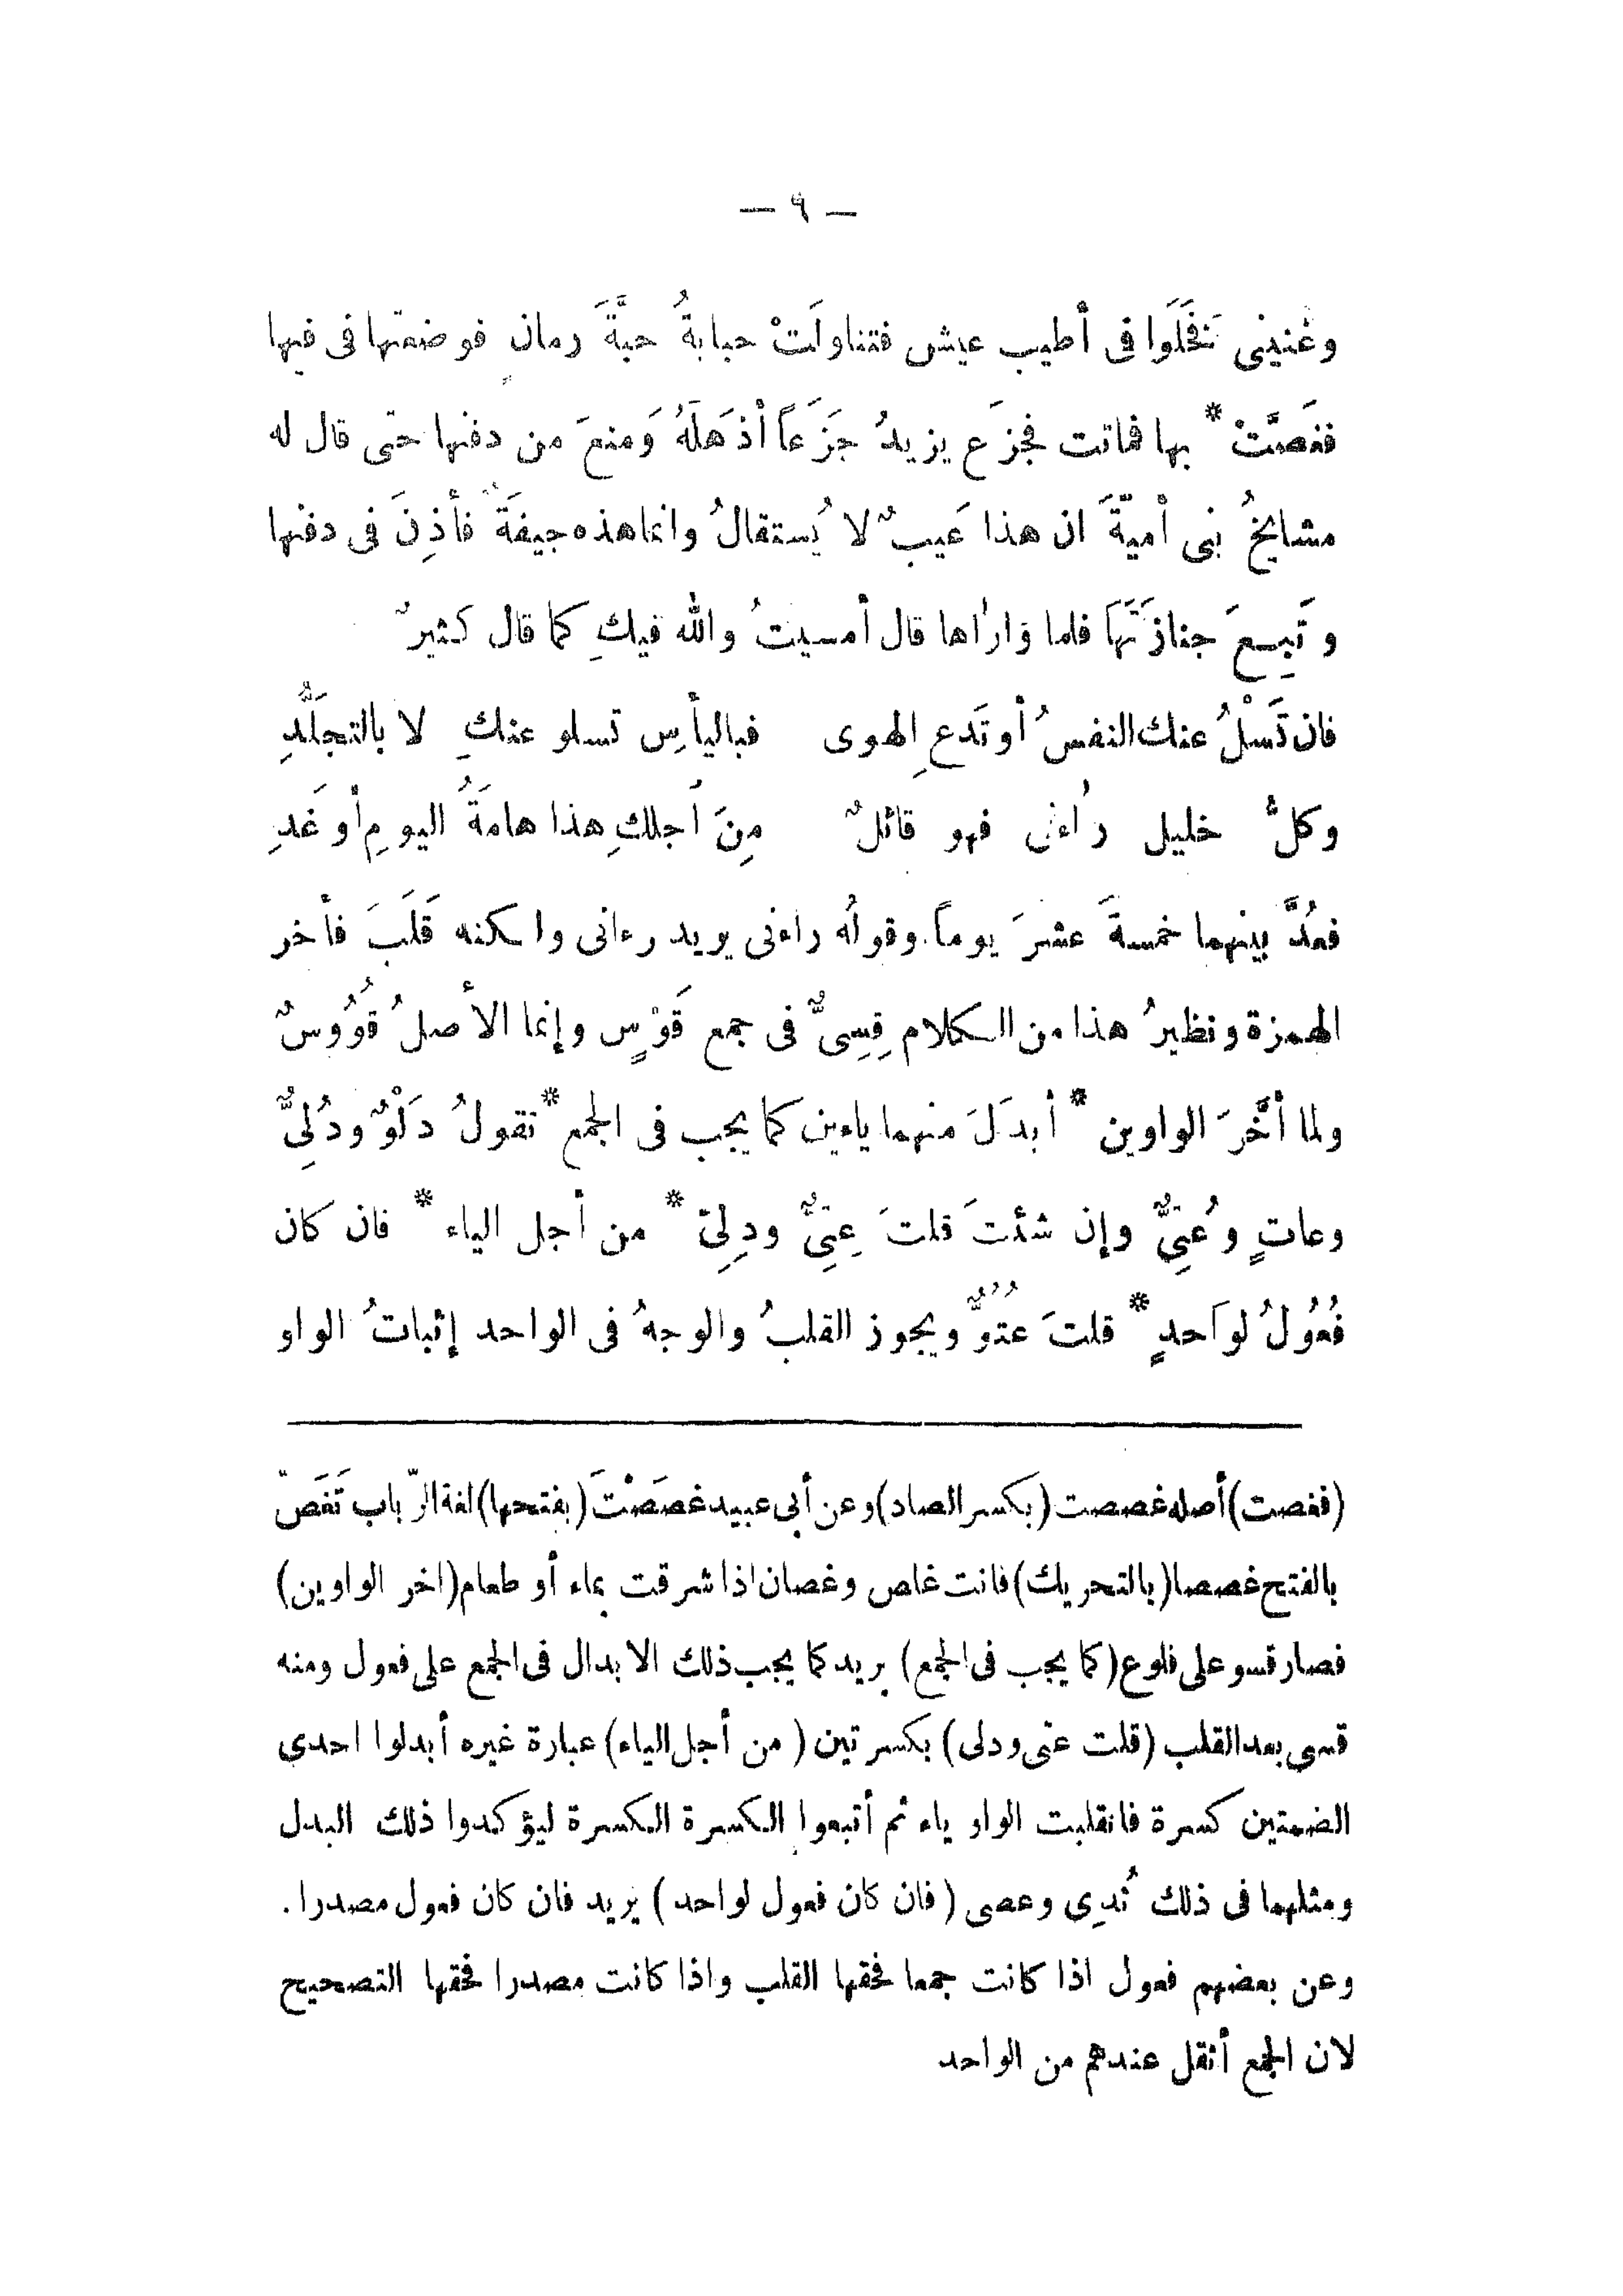 — ٩ —
وغنينى فَخَلَوا فى أطيب عيش فتناولَتْ حبابةُ حبَّةَ رمانٍ فوضعتها فى فيها
فغَصَّتْ * بها فماتت فجزَع يزيدُ جَزَعاً أذهَلَهُ وَمنعَ من دفنها حتى قال له
مشايخُ بنى أميّةَ ان هذا عَيبٌ لا يُستقالُ وانما هذه جيفَةٌ فأذِنَ فى دفنها
وتَبِعَ جنازَتَهَا فلما وَاراها قال أمسيتُ والله فيكِ كما قال كثيرٌ
فان تَسْلُ عنك النفسُ أو تَدعِ الهوى فباليأسِ تسلو عنكِ لا بالتجلُّدِ
وكلُّ خليل راءنى فهو قائلٌ مِنَ اَجلكِ هذا هامةُ اليومِ أو غَدِ
فعُدَّ بينهما خمسةَ عشرَ يوماً. وقولُه راءنى يريد رءانى ولكنه قَلَبَ فأخر
الهمزة ونظيرُ هذا من الكلام قِسِىٌّ فى جمع قَوْسٍ وإنما الأصلُ قُوُوسٌ
ولما أخَّرَ الواوين * أبدَلَ منهما ياءين كما يجب فى الجمع * تقولُ دَلْوٌ ودُلِىٌّ
وعاتٍ وعُتِىٌّ وإن شئتَ قلتَ عِتِىٌّ ودِلِىّ * من أجل الياء * فان كان
فُعُولُ لوَاحدٍ * قلتَ عُتُوٌّ ويجوز القلبُ والوجهُ فى الواحد إثباتُ الواو
(فغصت) أصله غصصت (بكسر الصاد) وعن أبى عبيد غصَصْتَ (بفتحها) لغة الرّباب تَغَصّ
بالفتح غصصا (بالتحريك) فانت غاص وغصان اذا شرقت بماء أو طعام (اخر الواوين)
فصار قسو على فلوع (كما يجب فى الجمع) يريد كما يجب ذلك الابدال فى الجمع على فعول ومنه
قسى بعد القلب (قلت عتى ودلى) بكسرتين (من أجل الياء) عبارة غيره أبدلوا احدى
الضمتين كسرة فانقلبت الواو ياء ثم أتبعوا الكسرة الكسرة ليؤكدوا ذلك البدل
ومثلهما فى ذلك ثُدِى وعصى (فان كان فعول لواحد) يريد فان كان فعول مصدرا.
وعن بعضهم فعول اذا كانت جمعا فحقها القلب واذا كانت مصدرا فحقها التصحيح
لان الجمع أثقل عندهم من الواحد